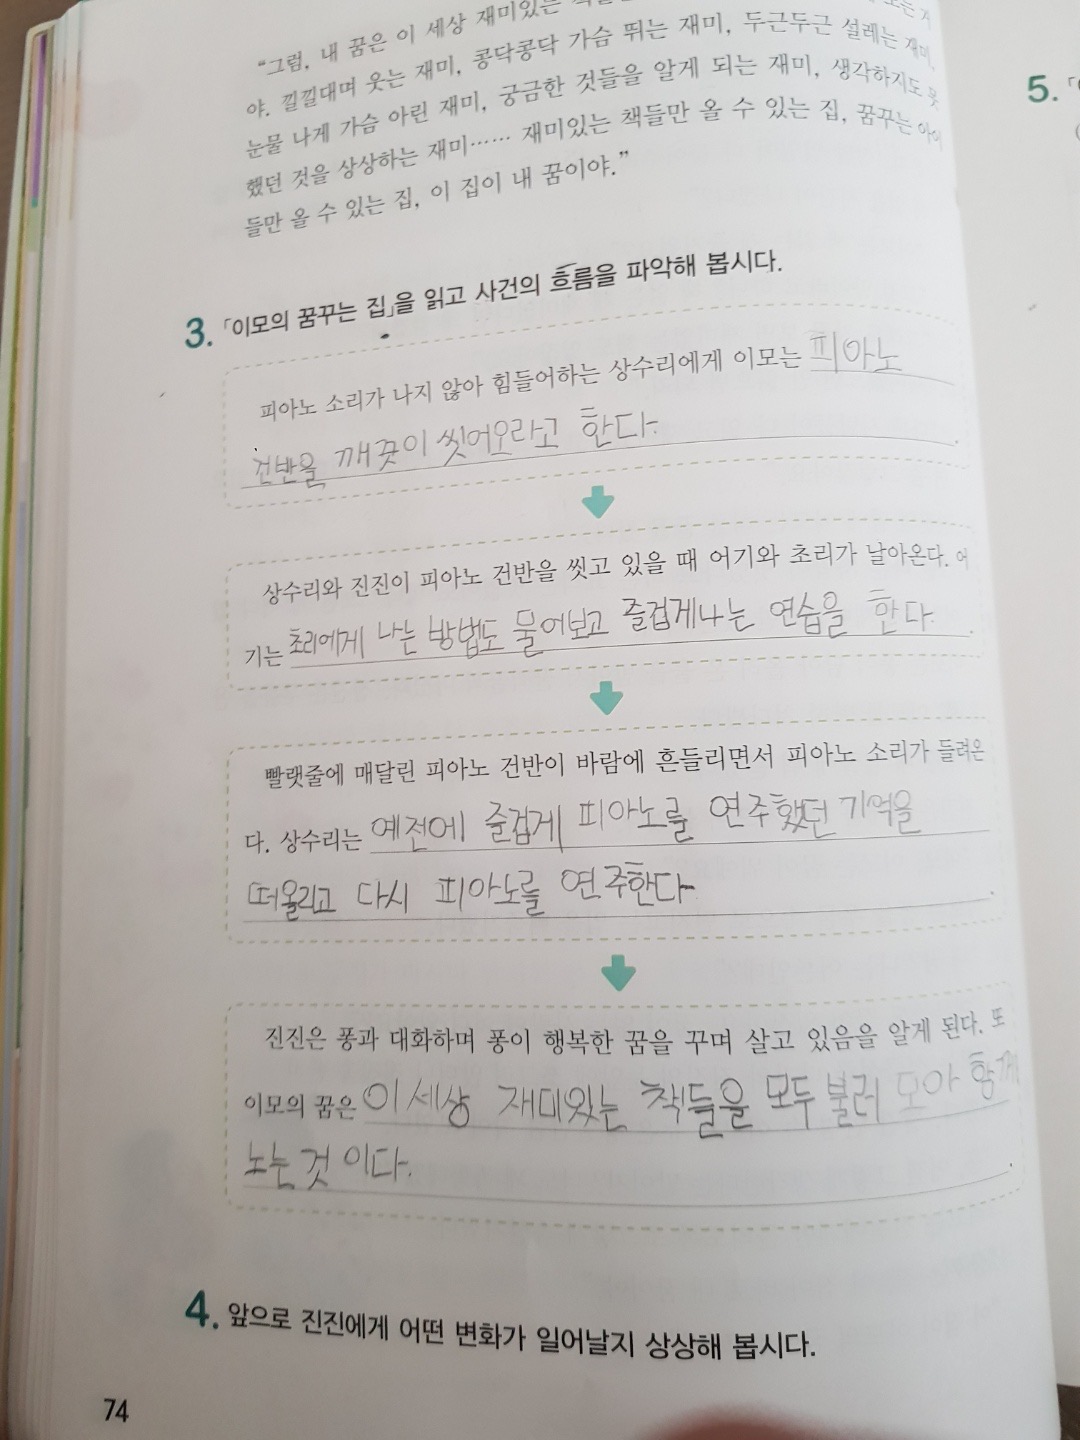 "그럼, 내 꿈은 이 세상 재미있는
야. 낄낄대며 웃는 재미, 콩닥콩닥 가슴 뛰는 재미, 두근두근 설레는 재미,
눈물 나게 가슴 아린 재미, 궁금한 것들을 알게 되는 재미, 생각하지도 못
했던 것을 상상하는 재미…… 재미있는 책들만 올 수 있는 집, 꿈꾸는 아이
들만 올 수 있는 집, 이 집이 내 꿈이야."
3. 「이모의 꿈꾸는 집」을 읽고 사건의 흐름을 파악해 봅시다.
피아노 소리가 나지 않아 힘들어하는 상수리에게 이모는 피아노
건반을 깨끗이 씻어오라고 한다.
상수리와 진진이 피아노 건반을 씻고 있을 때 어기와 초리가 날아온다. 어
기는 초리에게 나는 방법도 물어보고 즐겁게 나는 연습을 한다.
빨랫줄에 매달린 피아노 건반이 바람에 흔들리면서 피아노 소리가 들려온
다. 상수리는 예전에 즐겁게 피아노를 연주했던 기억을
떠올리고 다시 피아노를 연주한다.
진진은 퐁과 대화하며 퐁이 행복한 꿈을 꾸며 살고 있음을 알게 된다. 또
이모의 꿈은 이 세상 재미있는 책들을 모두 불러 모아 함께
노는 것 이다.
4. 앞으로 진진에게 어떤 변화가 일어날지 상상해 봅시다.
74
5.